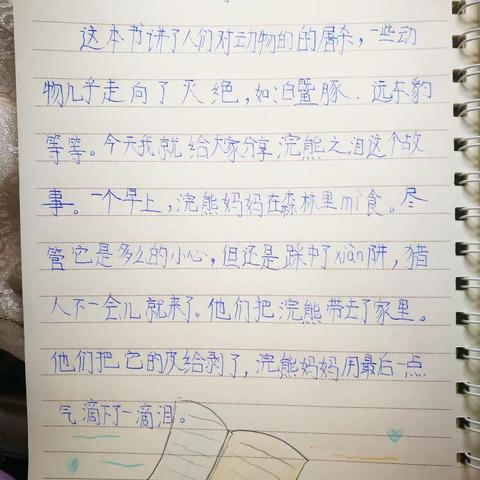 这本书讲了人们对动物的的屠杀，一些动
物几乎走向了灭绝，如白鱀豚、远东豹
等等。今天我就给大家分享浣熊之泪这个故
事。一个早上，浣熊妈妈在森林里mì食。尽
管它是多么的小心，但还是踩中了xiàn阱，猎
人不一会儿就来了。他们把浣熊带去了家里。
他们把它的皮给剥了，浣熊妈妈用最后一点
气滴下了一滴泪。